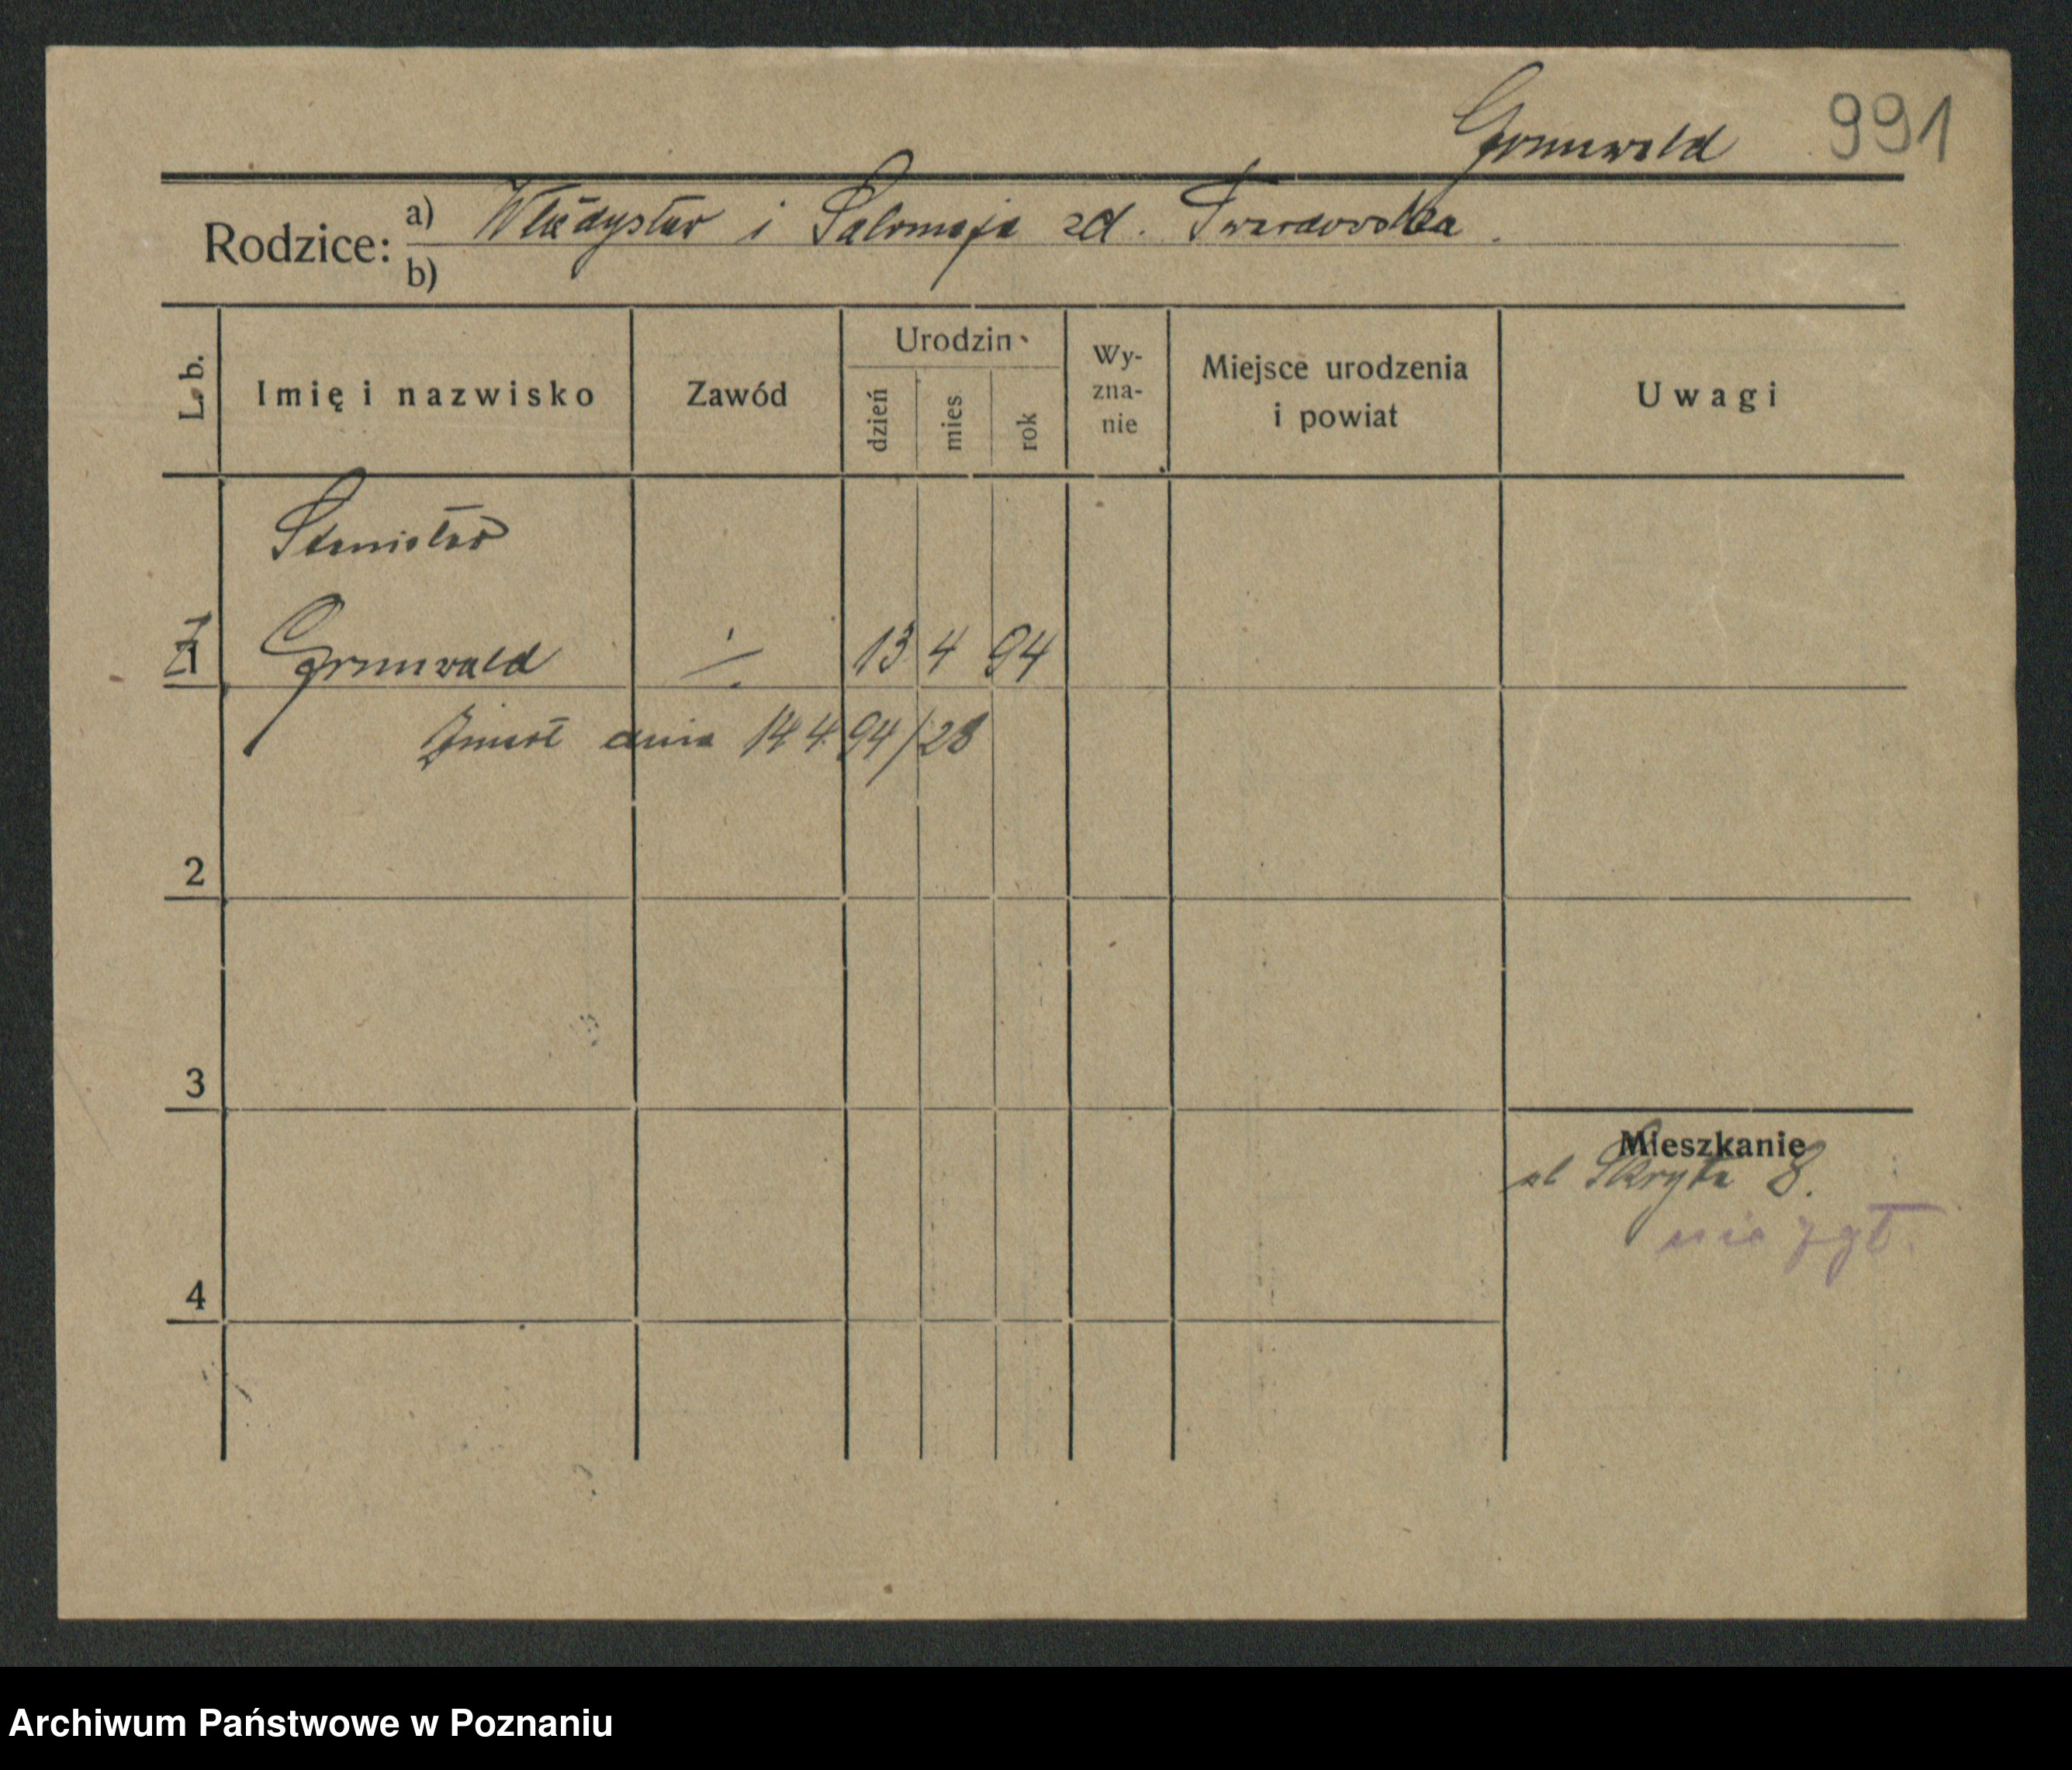 Grunwald 991
Rodzice: a) Władysław i Salomeja zd. Twardowska.
b)
L. b. Imię i nazwisko Zawód Urodzin Wyznanie Miejsce urodzenia i powiat Uwagi
dzień mies rok
Stanisław
1 Grunwald ÷ 13 4 94
Zmarł dnia 14 4 94/28
2
3
Mieszkanie
ul Skryta 8.
nie zgł.
4
Archiwum Państwowe w Poznaniu